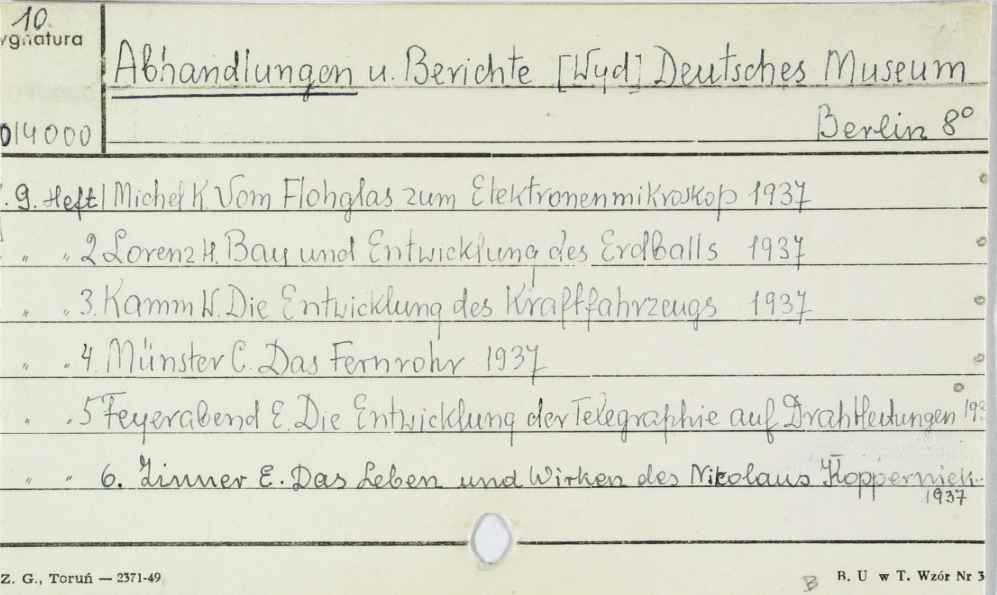 10.
ygnatura
Abhandlungen u. Berichte [Wyd] Deutsches Museum
014000
Berlin 8°
.9. Heft 1 Michel K. Vom Flohglas zum Elektronenmikroskop 1937
" " 2 Lorenz H. Bau und Entwicklung des Erdballs 1937
" " 3. Kamm W. Die Entwicklung des Kraftfahrzeugs 1937
" " 4. Münster C. Das Fernrohr 1937
" " 5 Feyerabend E. Die Entwicklung der Telegraphie auf Drahtleitungen 193
" " 6. Zinner E. Das Leben und Wirken des Nikolaus Koppernick
1937
Z. G., Toruń — 2371-49
B
B. U w T. Wzór Nr 3